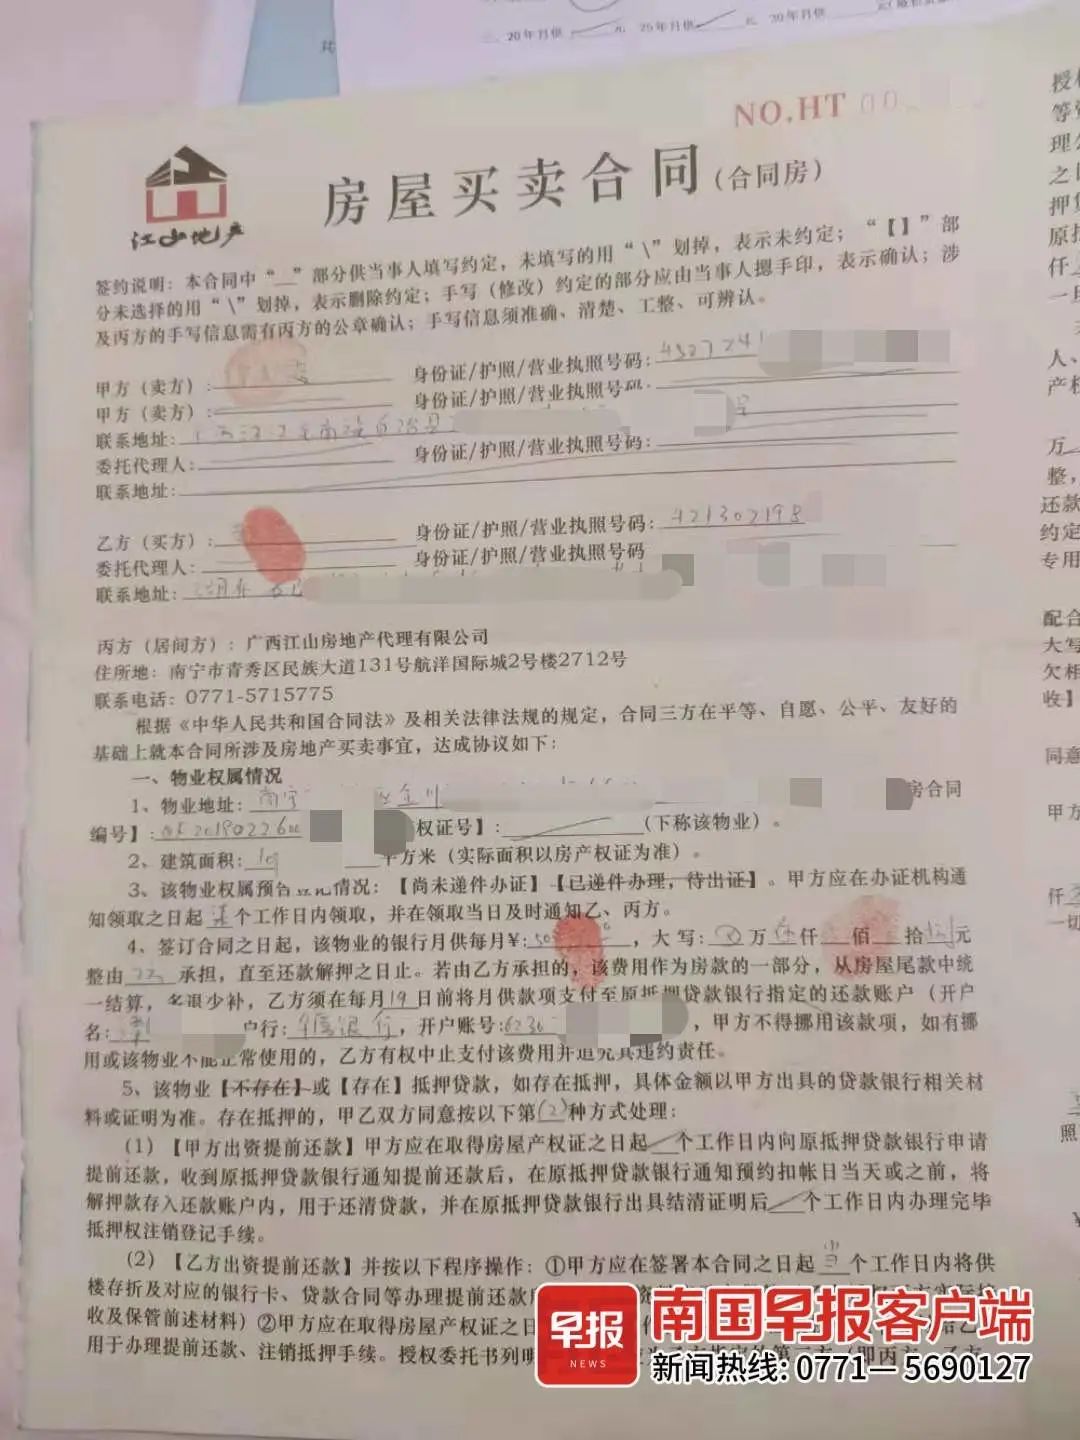 20年月供 元, 25年月供 元, 30年月供
NO.HT 00
江山地产
房屋买卖合同(合同房)
签约说明：本合同中“__”部分供当事人填写约定，未填写的用“\”划掉，表示未约定；“【】”部
分未选择的用“\”划掉，表示删除约定；手写（修改）约定的部分应由当事人摁手印，表示确认；涉
及丙方的手写信息需有丙方的公章确认；手写信息须准确、清楚、工整、可辨认。
甲方（卖方）: 身份证/护照/营业执照号码: 4527241
甲方（卖方）: 身份证/护照/营业执照号码:
联系地址: 自治县 号
委托代理人: 身份证/护照/营业执照号码:
联系地址:
乙方（买方）: 身份证/护照/营业执照号码: 421302198
委托代理人: 身份证/护照/营业执照号码
联系地址: 湖北
丙方（居间方）: 广西江山房地产代理有限公司
住所地: 南宁市青秀区民族大道131号航洋国际城2号楼2712号
联系电话: 0771-5715775
根据《中华人民共和国合同法》及相关法律法规的规定，合同三方在平等、自愿、公平、友好的
基础上就本合同所涉及房地产买卖事宜，达成协议如下：
一、物业权属情况
1、物业地址: 南宁 房合同
编号】: 20190226 权证号】: (下称该物业)。
2、建筑面积: 平方米（实际面积以房产权证为准）。
3、该物业权属预告登记情况：【尚未递件办证】【已递件办理，待出证】。甲方应在办证机构通
知领取之日起 个工作日内领取，并在领取当日及时通知乙、丙方。
4、签订合同之日起，该物业的银行月供每月¥: 50 ，大写: 万 仟 佰 拾 元
整由 承担，直至还款解押之日止。若由乙方承担的，该费用作为房款的一部分，从房屋尾款中统
一结算，多退少补，乙方须在每月19日前将月供款项支付至原抵押贷款银行指定的还款账户（开户
名: 户行: 银行，开户账号: 6230 ，甲方不得挪用该款项，如有挪
用或该物业不能正常使用的，乙方有权中止支付该费用并追究其违约责任。
5、该物业【不存在】或【存在】抵押贷款，如存在抵押，具体金额以甲方出具的贷款银行相关材
料或证明为准。存在抵押的，甲乙双方同意按以下第(2)种方式处理：
（1）【甲方出资提前还款】甲方应在取得房屋产权证之日起 个工作日内向原抵押贷款银行申请
提前还款，收到原抵押贷款银行通知提前还款后，在原抵押贷款银行通知预约扣帐日当天或之前，将
解押款存入还款账户内，用于还清贷款，并在原抵押贷款银行出具结清证明后 个工作日内办理完毕
抵押权注销登记手续。
（2）【乙方出资提前还款】并按以下程序操作：①甲方应在签署本合同之日起 个工作日内将供
楼存折及对应的银行卡、贷款合同等办理提前还款
收及保管前述材料）②甲方应在取得房屋产权证之日
用于办理提前还款、注销抵押手续。授权委托书列明
早报
NEWS
南国早报客户端
新闻热线: 0771—5690127